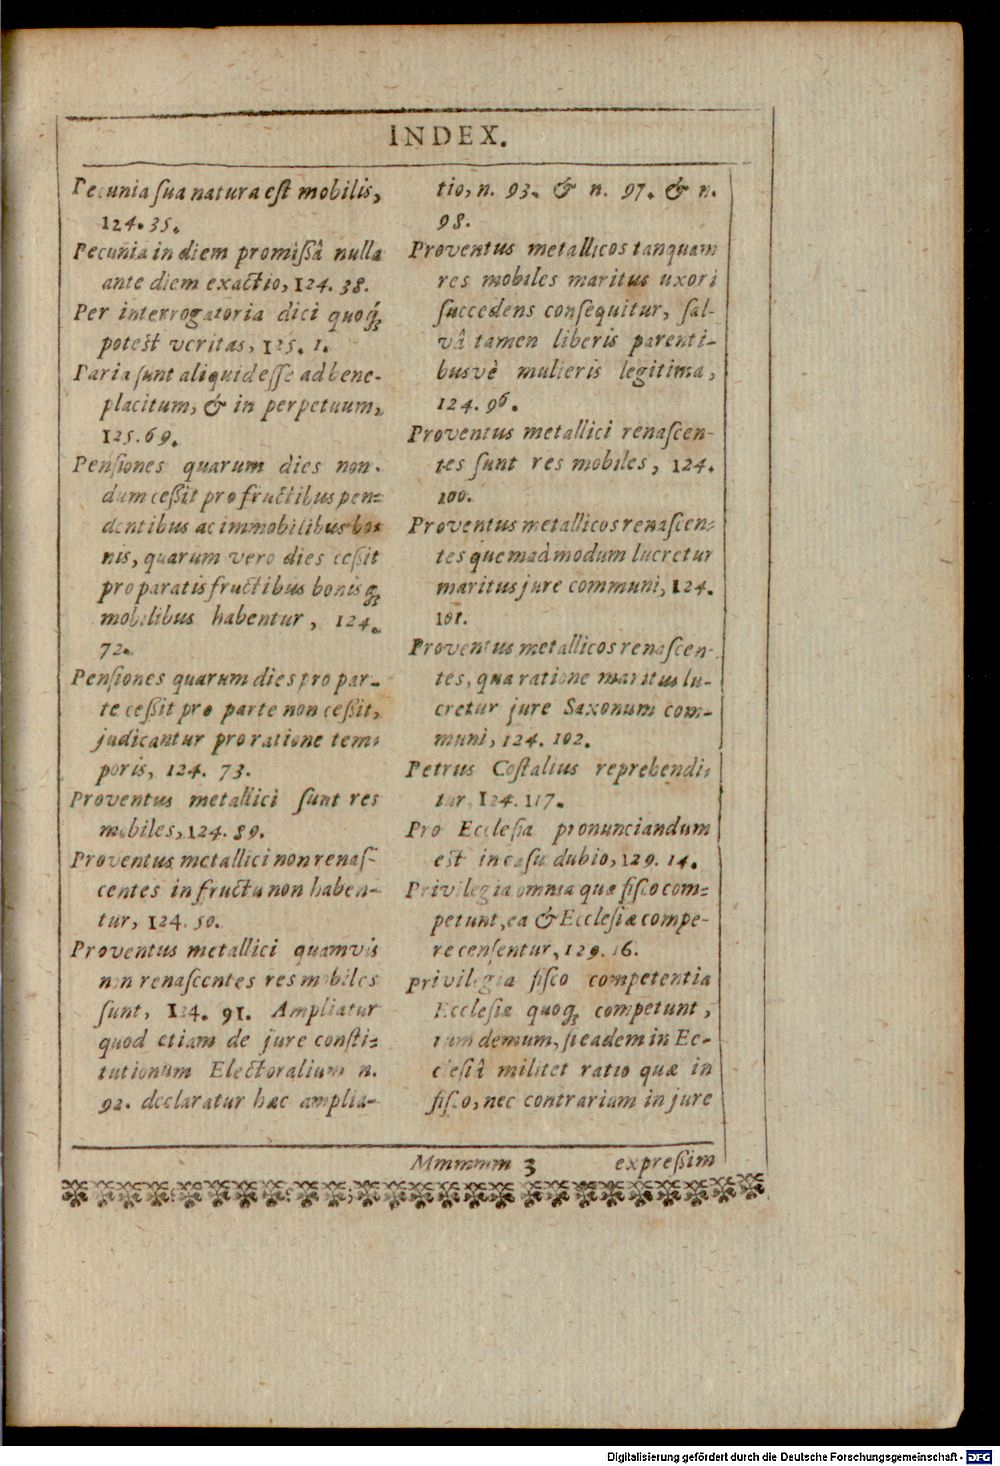 INDEX.
Pecunia ſua natura eſt mobilis,
124. 35.
Pecunia in diem promiſſâ nulla
ante diem exactio, 124. 38.
Per interrogatoria dici quoq́;
poteſt veritas, 125. 1.
Paria ſunt aliquid eſſe ad bene-
placitum, & in perpetuum,
125. 69.
Penſiones quarum dies non-
dum ceſſit pro fructibus pen-
dentibus ac immobilibus bo-
nis, quarum vero dies ceſſit
pro paratis fructibus bonisq;
mobilibus habentur, 124.
72.
Penſiones quarum dies pro par-
te ceſſit pro parte non ceſſit,
judicantur pro ratione tem-
poris, 124. 73.
Proventus metallici ſunt res
mobiles, 124. 89.
Proventus metallici non renaſ-
centes in fructu non haben-
tur, 124. 50.
Proventus metallici quamvis
non renaſcentes res mobiles
ſunt, 124. 91. Ampliatur
quod etiam de jure conſti-
tutionum Electoralium n.
92. declaratur hæc amplia-
tio, n. 93. & n. 97. & n.
98.
Proventus metallicos tanquam
res mobiles maritus uxori
ſuccedens conſequitur, ſal-
vâ tamen liberis parenti-
busvè mulieris legitima,
124. 96.
Proventus metallici renaſcen-
tes ſunt res mobiles, 124.
100.
Proventus metallicos renaſcen-
tes quemadmodum lucretur
maritus jure communi, 124.
101.
Proventus metallicos renaſcen-
tes, qua ratione maritus lu-
cretur jure Saxonum com-
muni, 124. 102.
Petrus Coſtalius reprehendi-
tur 124. 117.
Pro Eccleſia pronunciandum
eſt in caſu dubio, 129. 14.
Privilegia omnia quæ fiſco com-
petunt, ea & Eccleſiæ compe-
re cenſentur, 129. 16.
privilegia fiſco competentia
Eccleſiæ quoq; competunt,
tum demum, ſi eadem in Ec-
cleſiâ militet ratio quæ in
fiſco, nec contrariam in jure
Mmmmmm 3
expreſſim
Digitalisierung gefördert durch die Deutsche Forschungsgemeinschaft - DFG